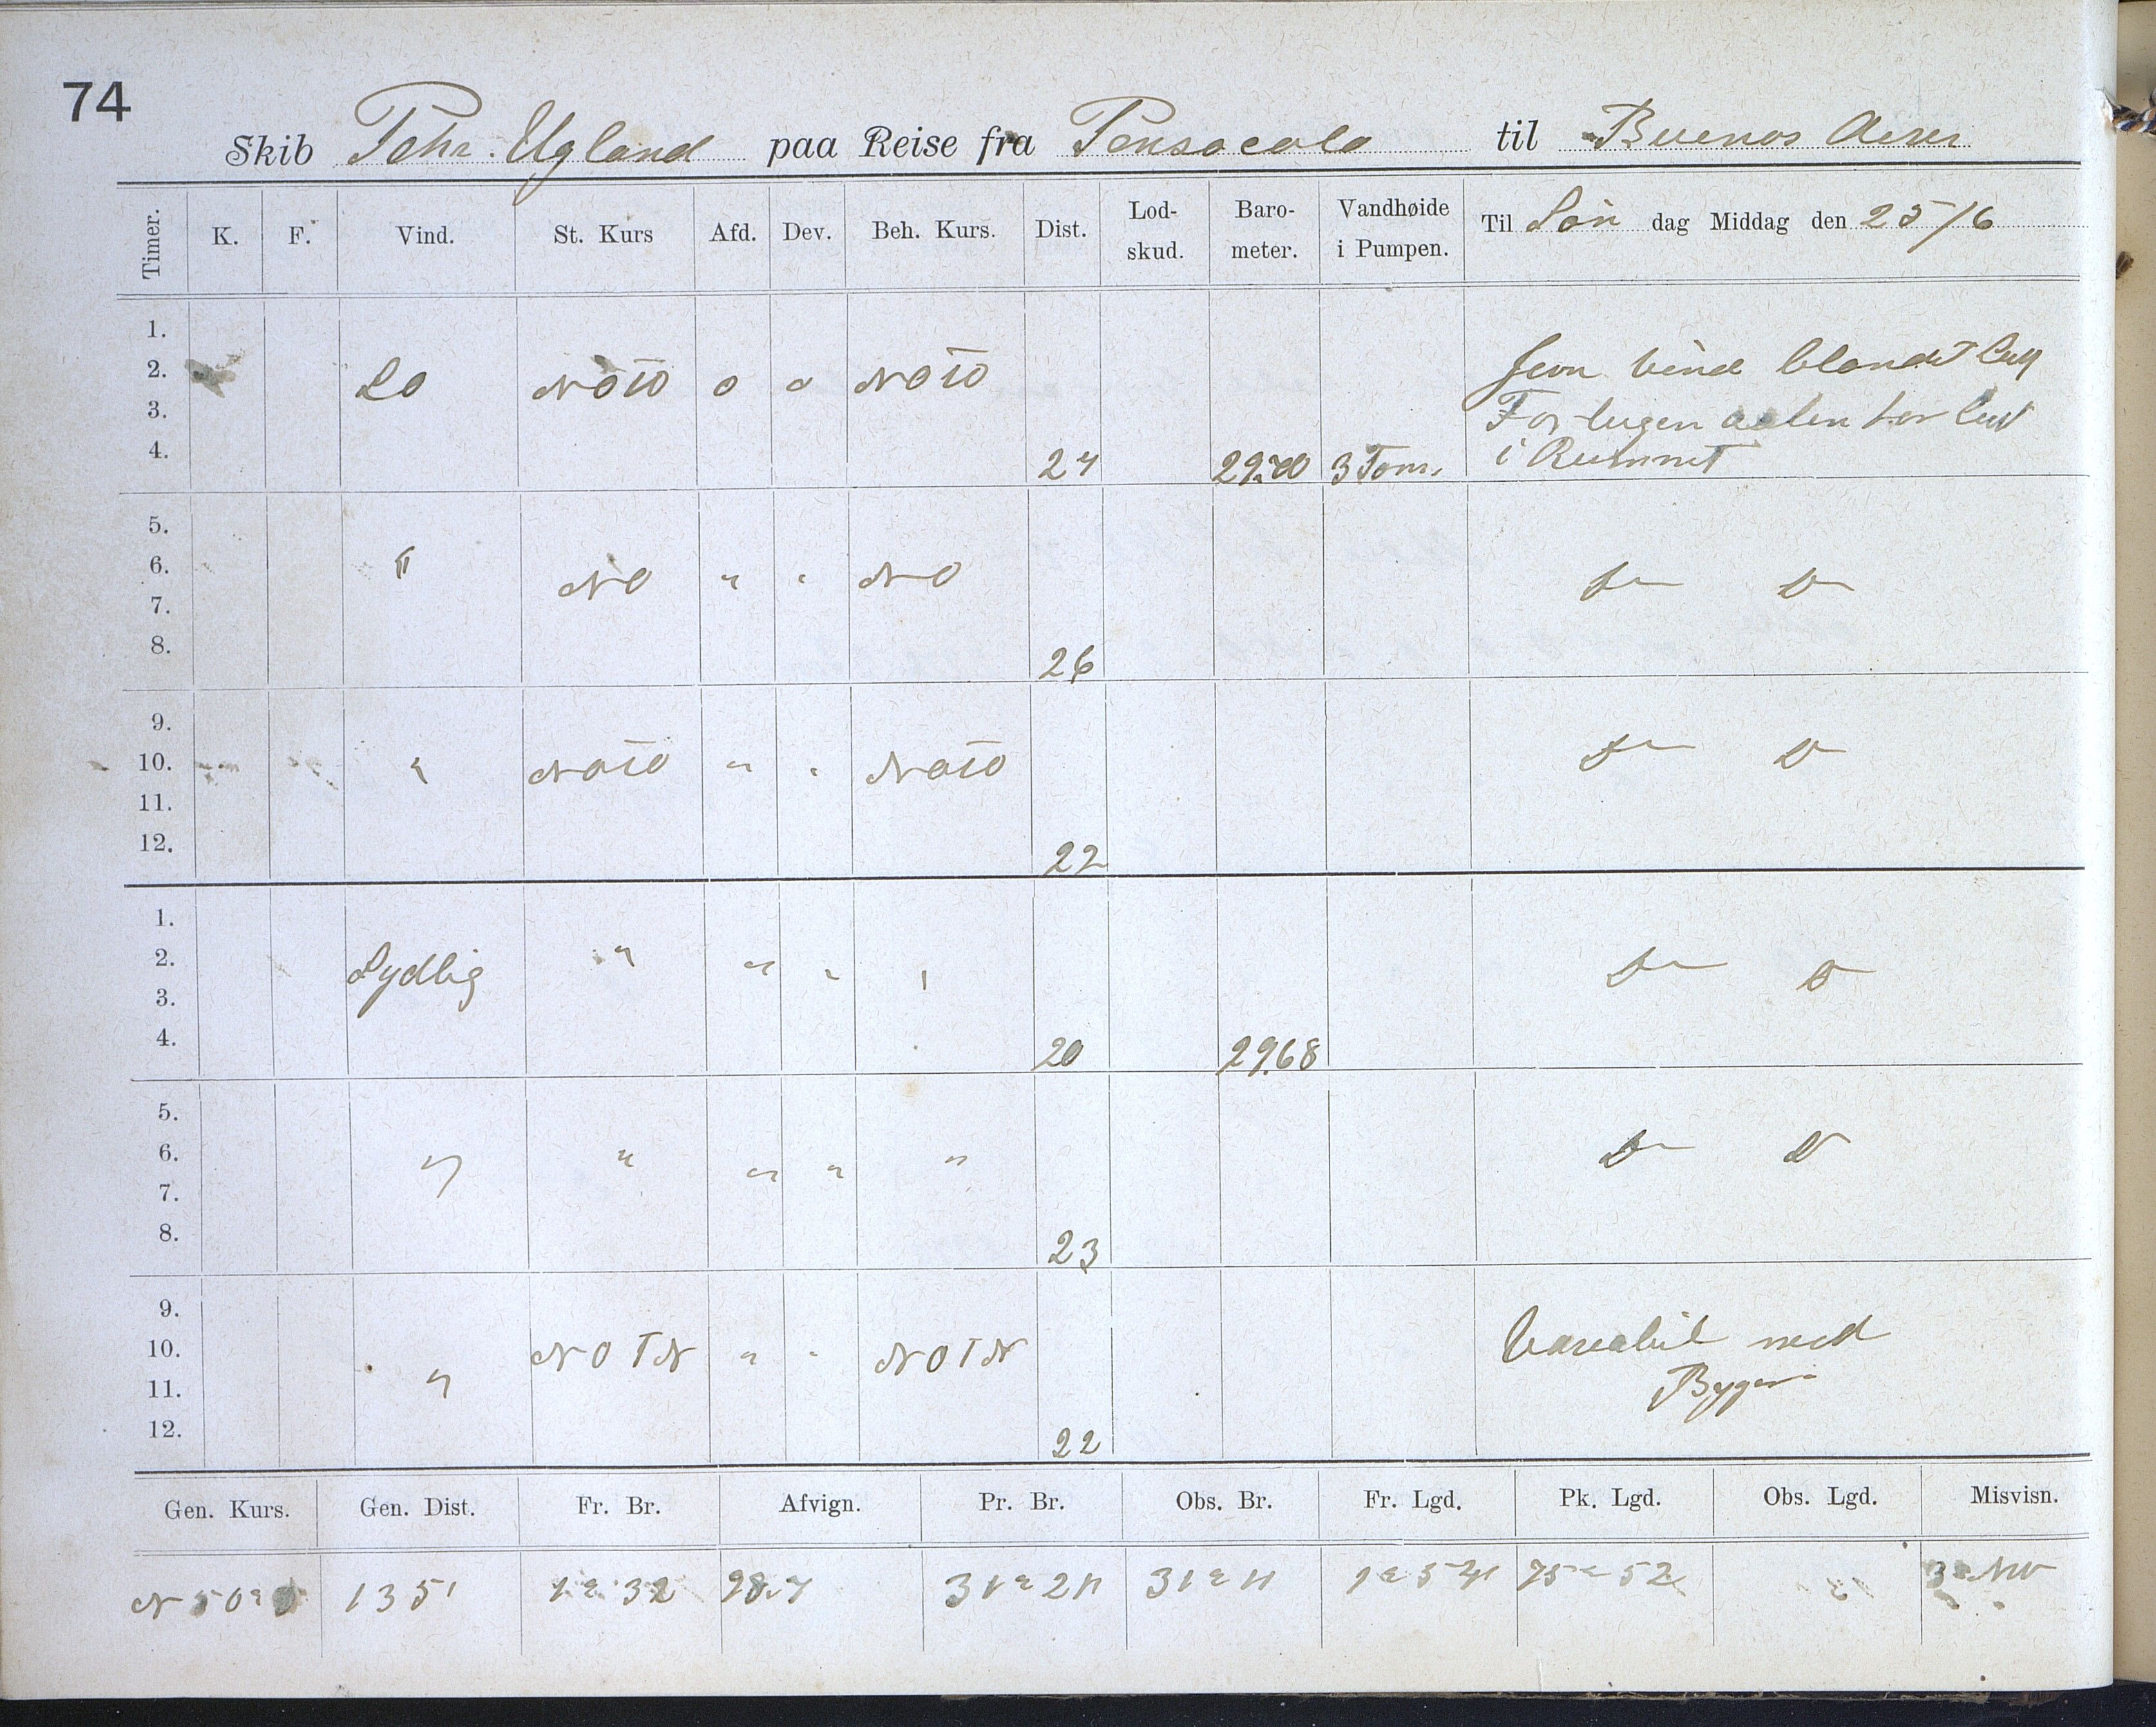 74
Skib Johs. Ugland paa Reise fra Pensacola til Buenos Aires
Timer. K. F. Vind. St. Kurs Afd. Dev. Beh. Kurs. Dist. Lod-skud. Baro-meter. Vandhøide i Pumpen. Til Søn dag Middag den 25/6
1.
2. SO NOtO 0 0 NOtO Jevn vind blandet luft
3. For lugen aaben for luft
4. 24 29.70 3 Tom. i Rummet
5.
6. " NO " " NO Do Do
7.
8. 26
9.
10. " NOtO " " NOtO Do Do
11.
12. 22
1.
2. Sydlig " " " " Do Do
3.
4. 20 29.68
5.
6. " " " " " Do Do
7.
8. 23
9.
10. " NOTN " " NOTN Variabil med
11. Byger
12. 22
Gen. Kurs. Gen. Dist. Fr. Br. Afvign. Pr. Br. Obs. Br. Fr. Lgd. Pk. Lgd. Obs. Lgd. Misvisn.
N 50° O 135' 1° 32 98.7 31° 21' 31° 11 1° 54' 75° 52